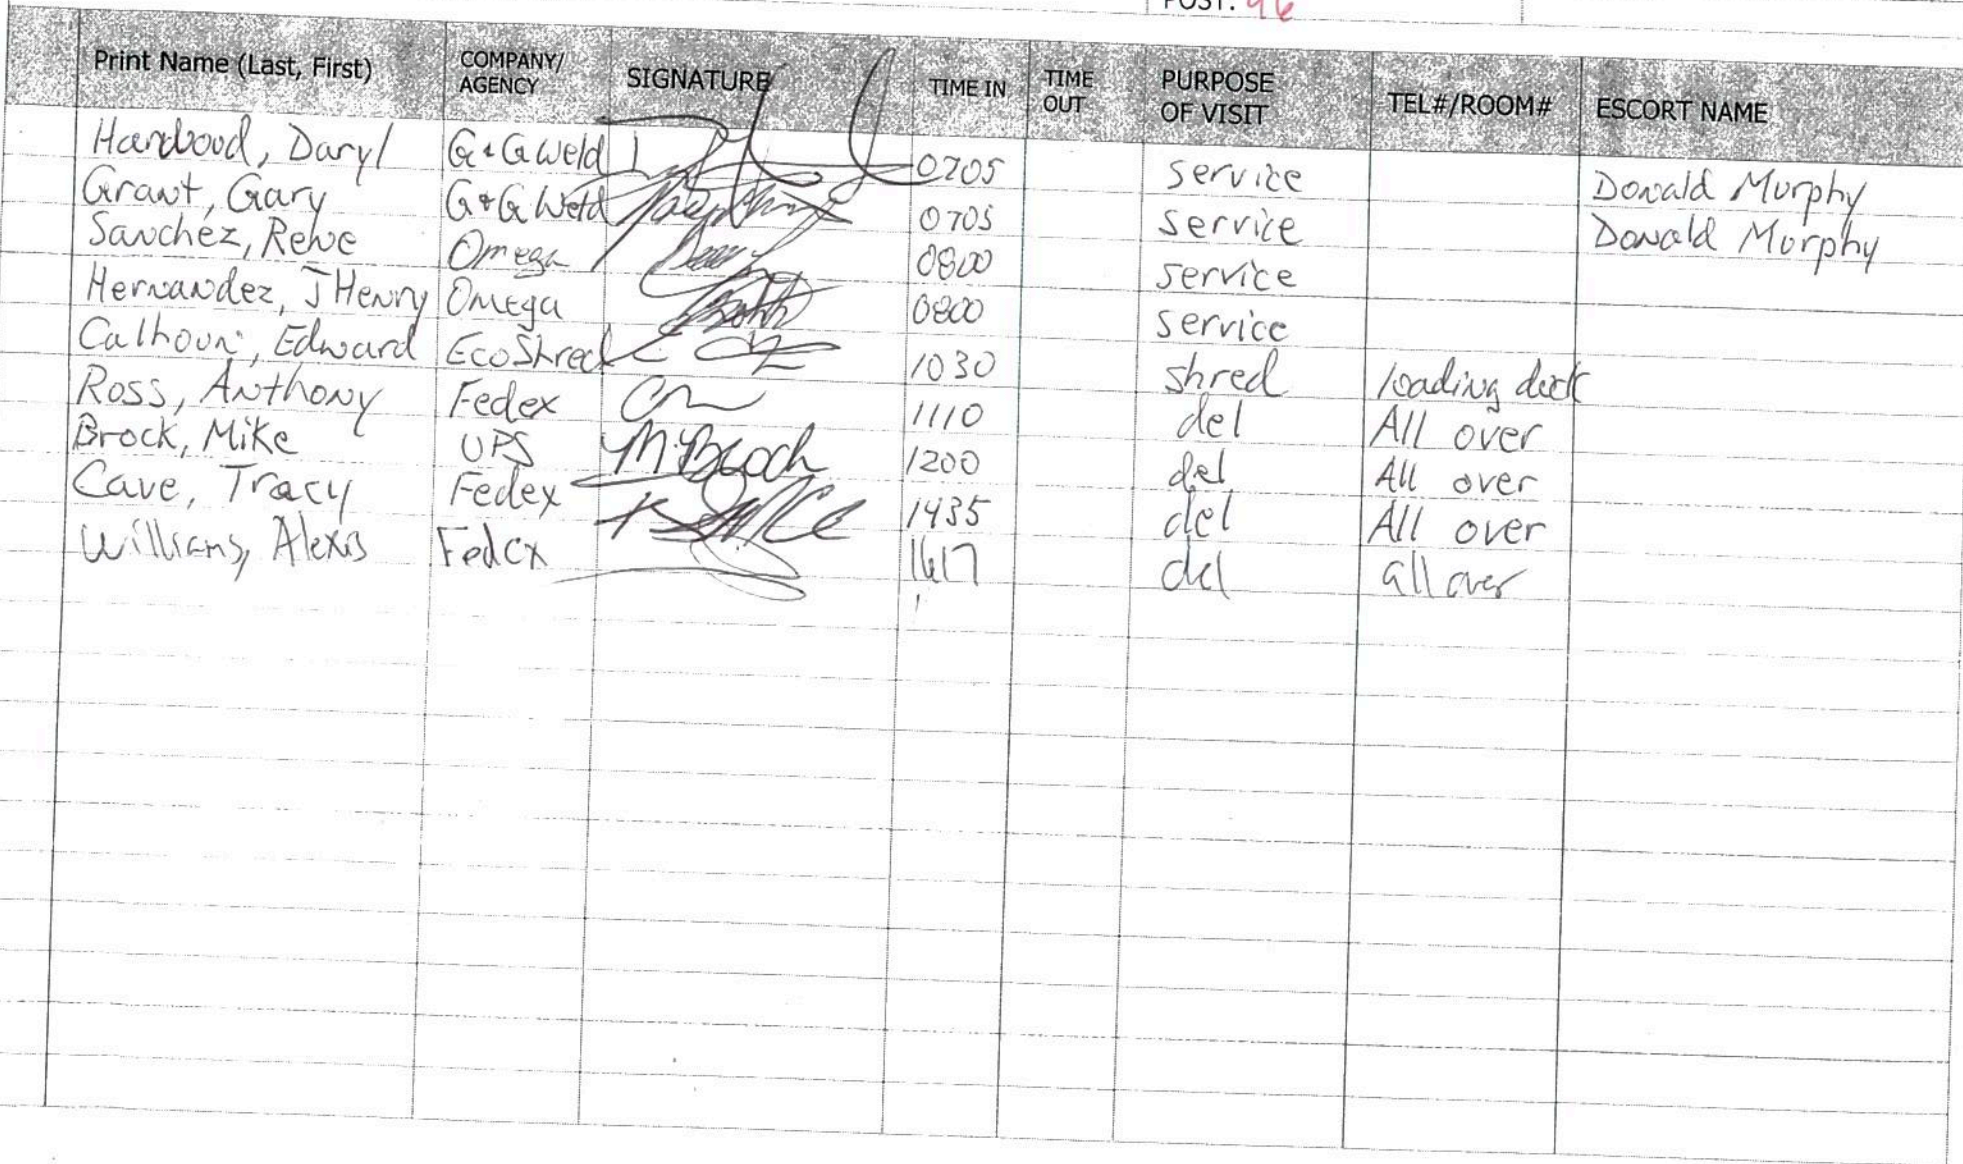 POST: 96
Print Name (Last, First) COMPANY/ AGENCY SIGNATURE TIME IN TIME OUT PURPOSE OF VISIT TEL#/ROOM# ESCORT NAME
Daryl G+G Weld 0705 service Donald Murphy
Grant, Gary G+G Weld 0705 service Donald Murphy
Sanchez, Rene Omega 0800 service
Hernandez, J Henry Omega 0800 service
Calhoun, Edward EcoShred 1030 shred loading dock
Ross, Anthony Fedex 1110 del All over
Brock, Mike UPS M Brock 1200 del All over
Cave, Tracy Fedex 1435 del All over
Williams, Alexis Fedex 1617 del all over